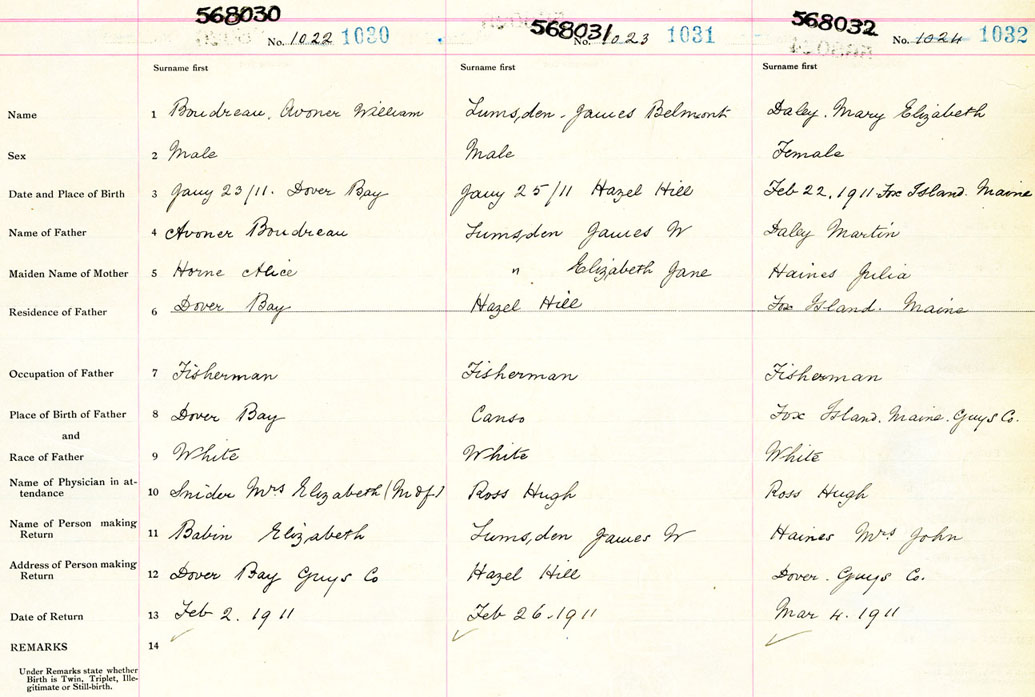 568030 568031 568032
No. 1022 1030 No. 1023 1031 No. 1024 1032
Surname first Surname first Surname first
Name 1 Boudreau, Avoner William Lumsden, James Belmont Daley, Mary Elizabeth
Sex 2 Male Male Female
Date and Place of Birth 3 Jany 23/11. Dover Bay Jany 25/11 Hazel Hill Feb 22, 1911 Fox Island. Maine
Name of Father 4 Avoner Boudreau Lumsden James W Daley Martin
Maiden Name of Mother 5 Horne Alice " Elizabeth Jane Haines Julia
Residence of Father 6 Dover Bay Hazel Hill Fox Island. Maine
Occupation of Father 7 Fisherman Fisherman Fisherman
Place of Birth of Father 8 Dover Bay Canso Fox Island. Maine. Guys Co.
and
Race of Father 9 White White White
Name of Physician in at-
tendance 10 Snider Mrs Elizabeth (Mdf) Ross Hugh Ross Hugh
Name of Person making
Return 11 Babin Elizabeth Lumsden James W Haines Mrs John
Address of Person making
Return 12 Dover Bay Guys Co Hazel Hill Dover. Guys Co.
Date of Return 13 Feb 2. 1911 Feb 26. 1911 Mar 4. 1911
REMARKS 14
Under Remarks state whether
Birth is Twin, Triplet, Ille-
gitimate or Still-birth.